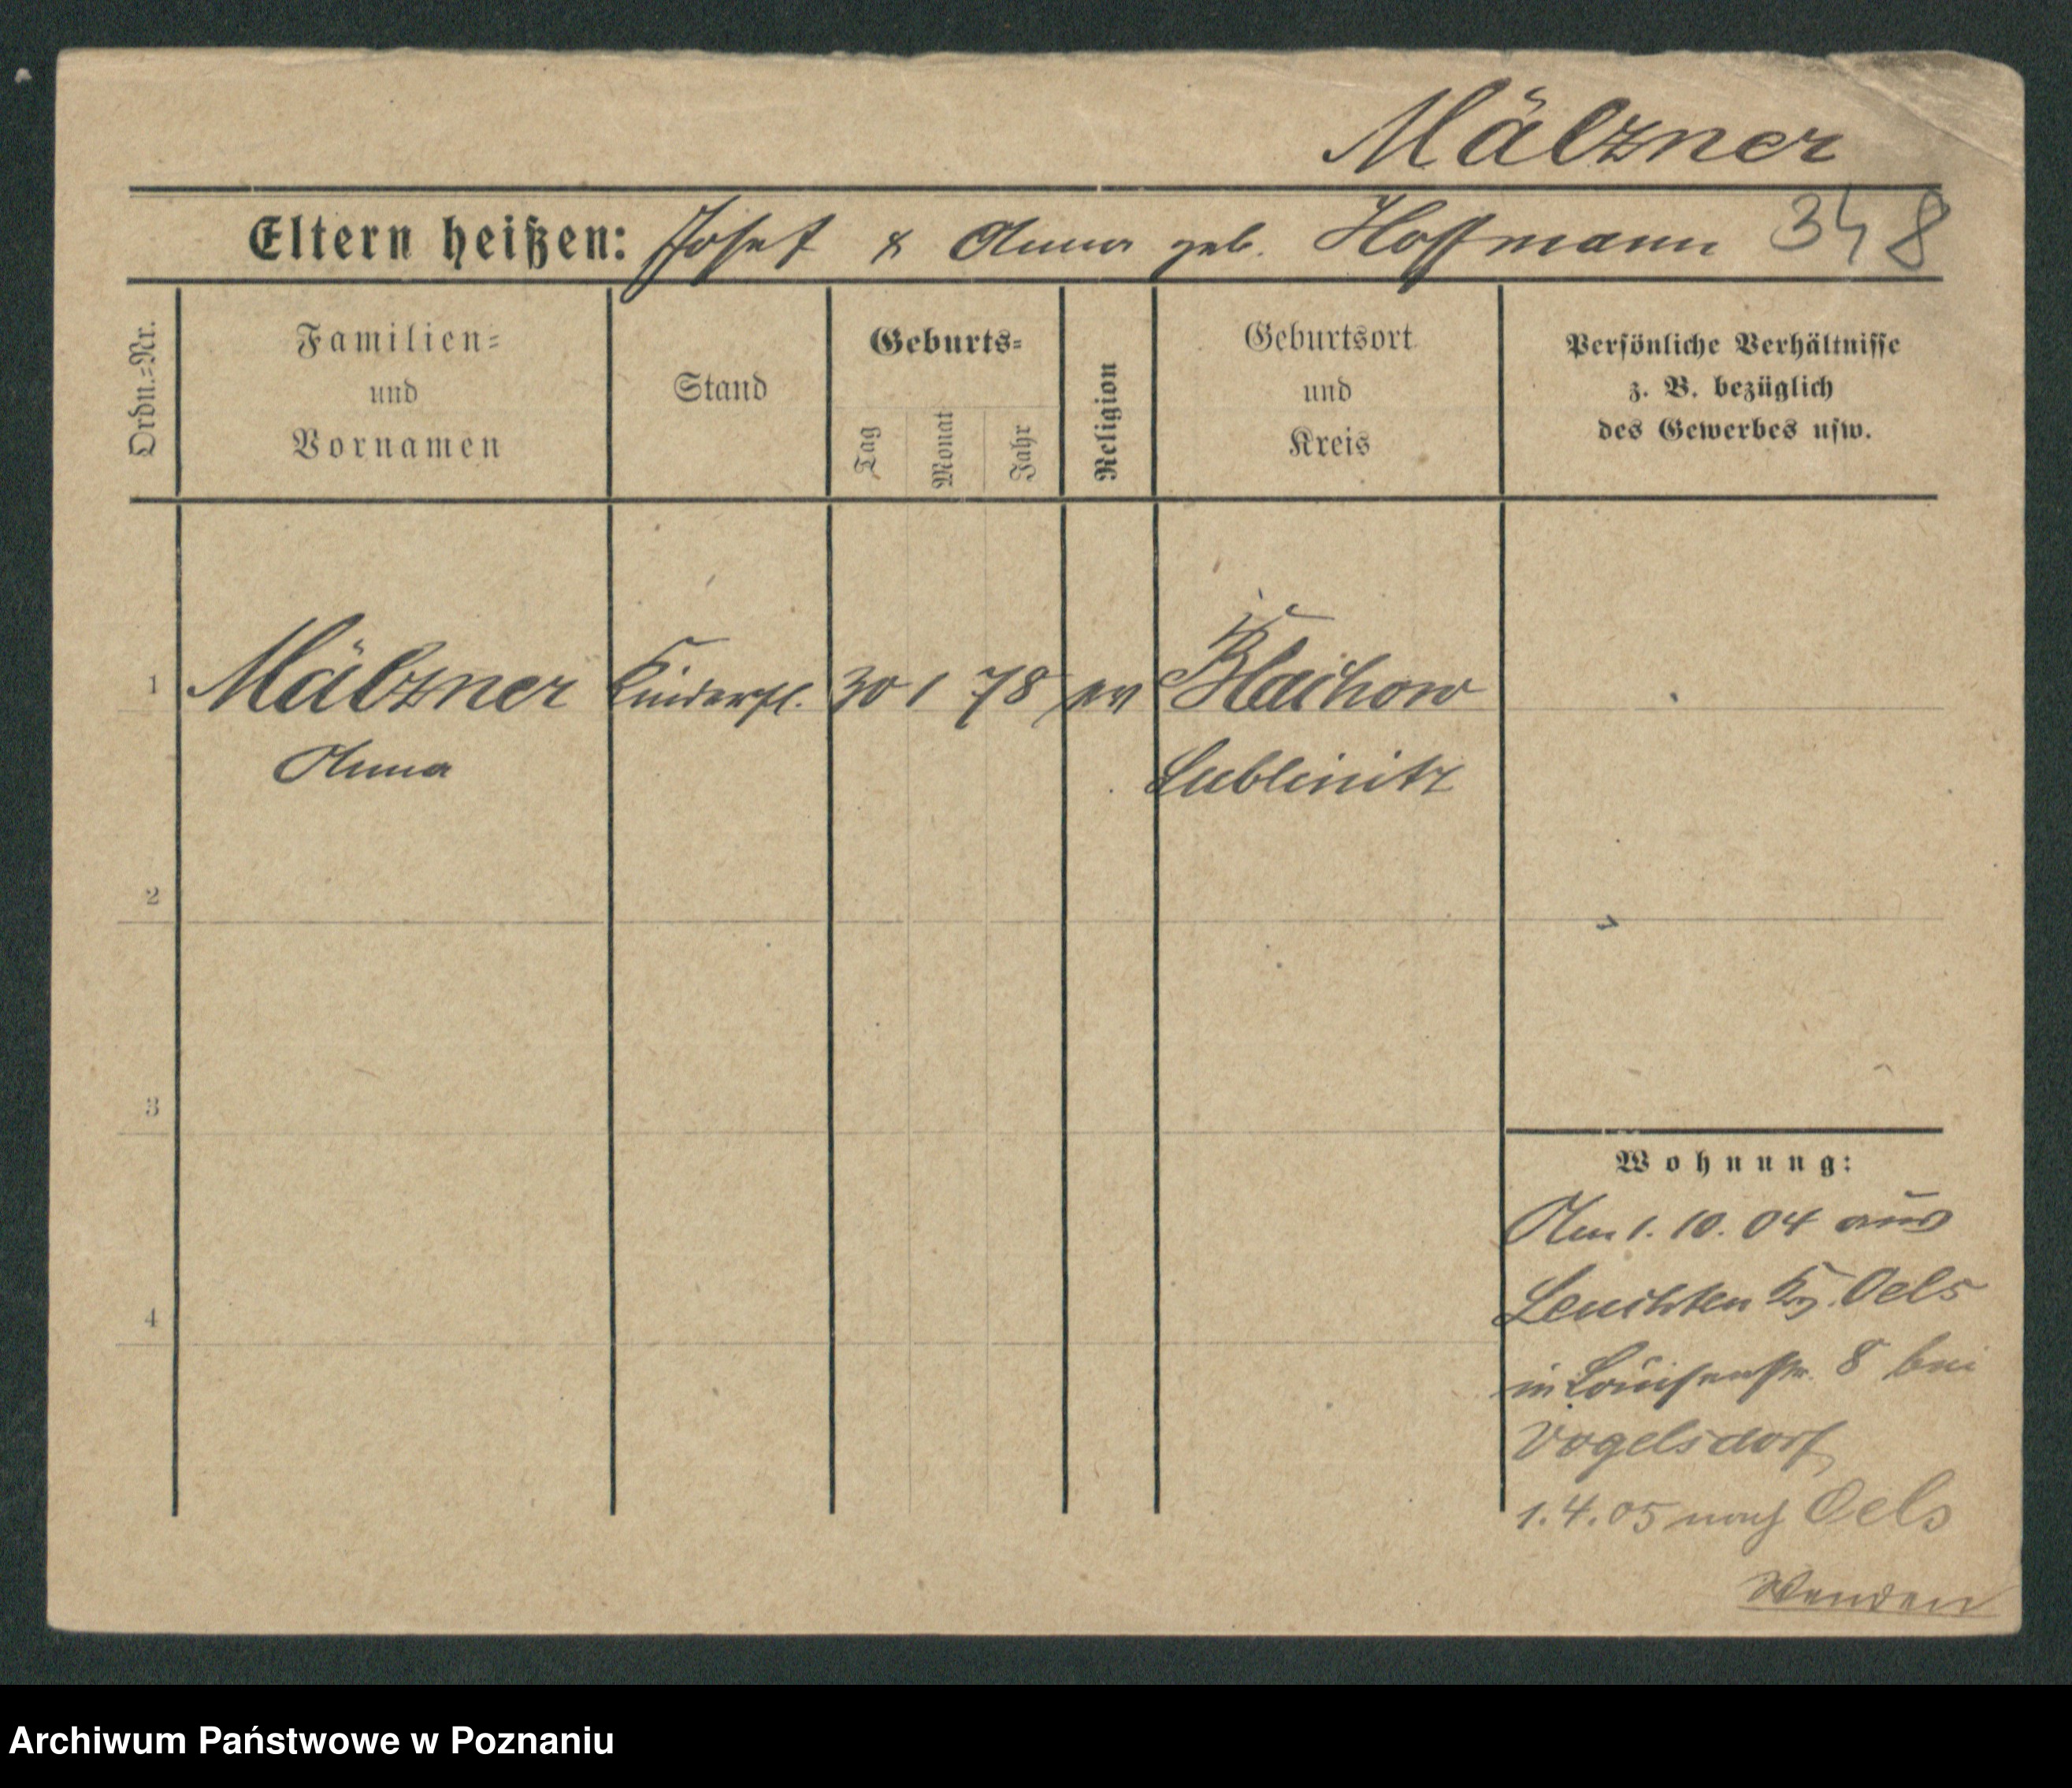 Mälzner
Eltern heißen: Josef & Anna geb. Hoffmann 348
Ordn.=Nr.
Familien=
und
Vornamen
Stand
Geburts=
Tag
Monat
Jahr
Religion
Geburtsort
und
Kreis
Persönliche Verhältnisse
z. B. bezüglich
des Gewerbes usw.
1 Mälzner Kinderfl. 30 1 78 ev Blachow
Anna Lublinitz
2
3
4
Wohnung:
Am 1. 10. 04 aus
Leuchten Kr. Oels
in Louisenstr. 8 bei
Vogelsdorf
1. 4. 05 nach Oels
Wenden
Archiwum Państwowe w Poznaniu